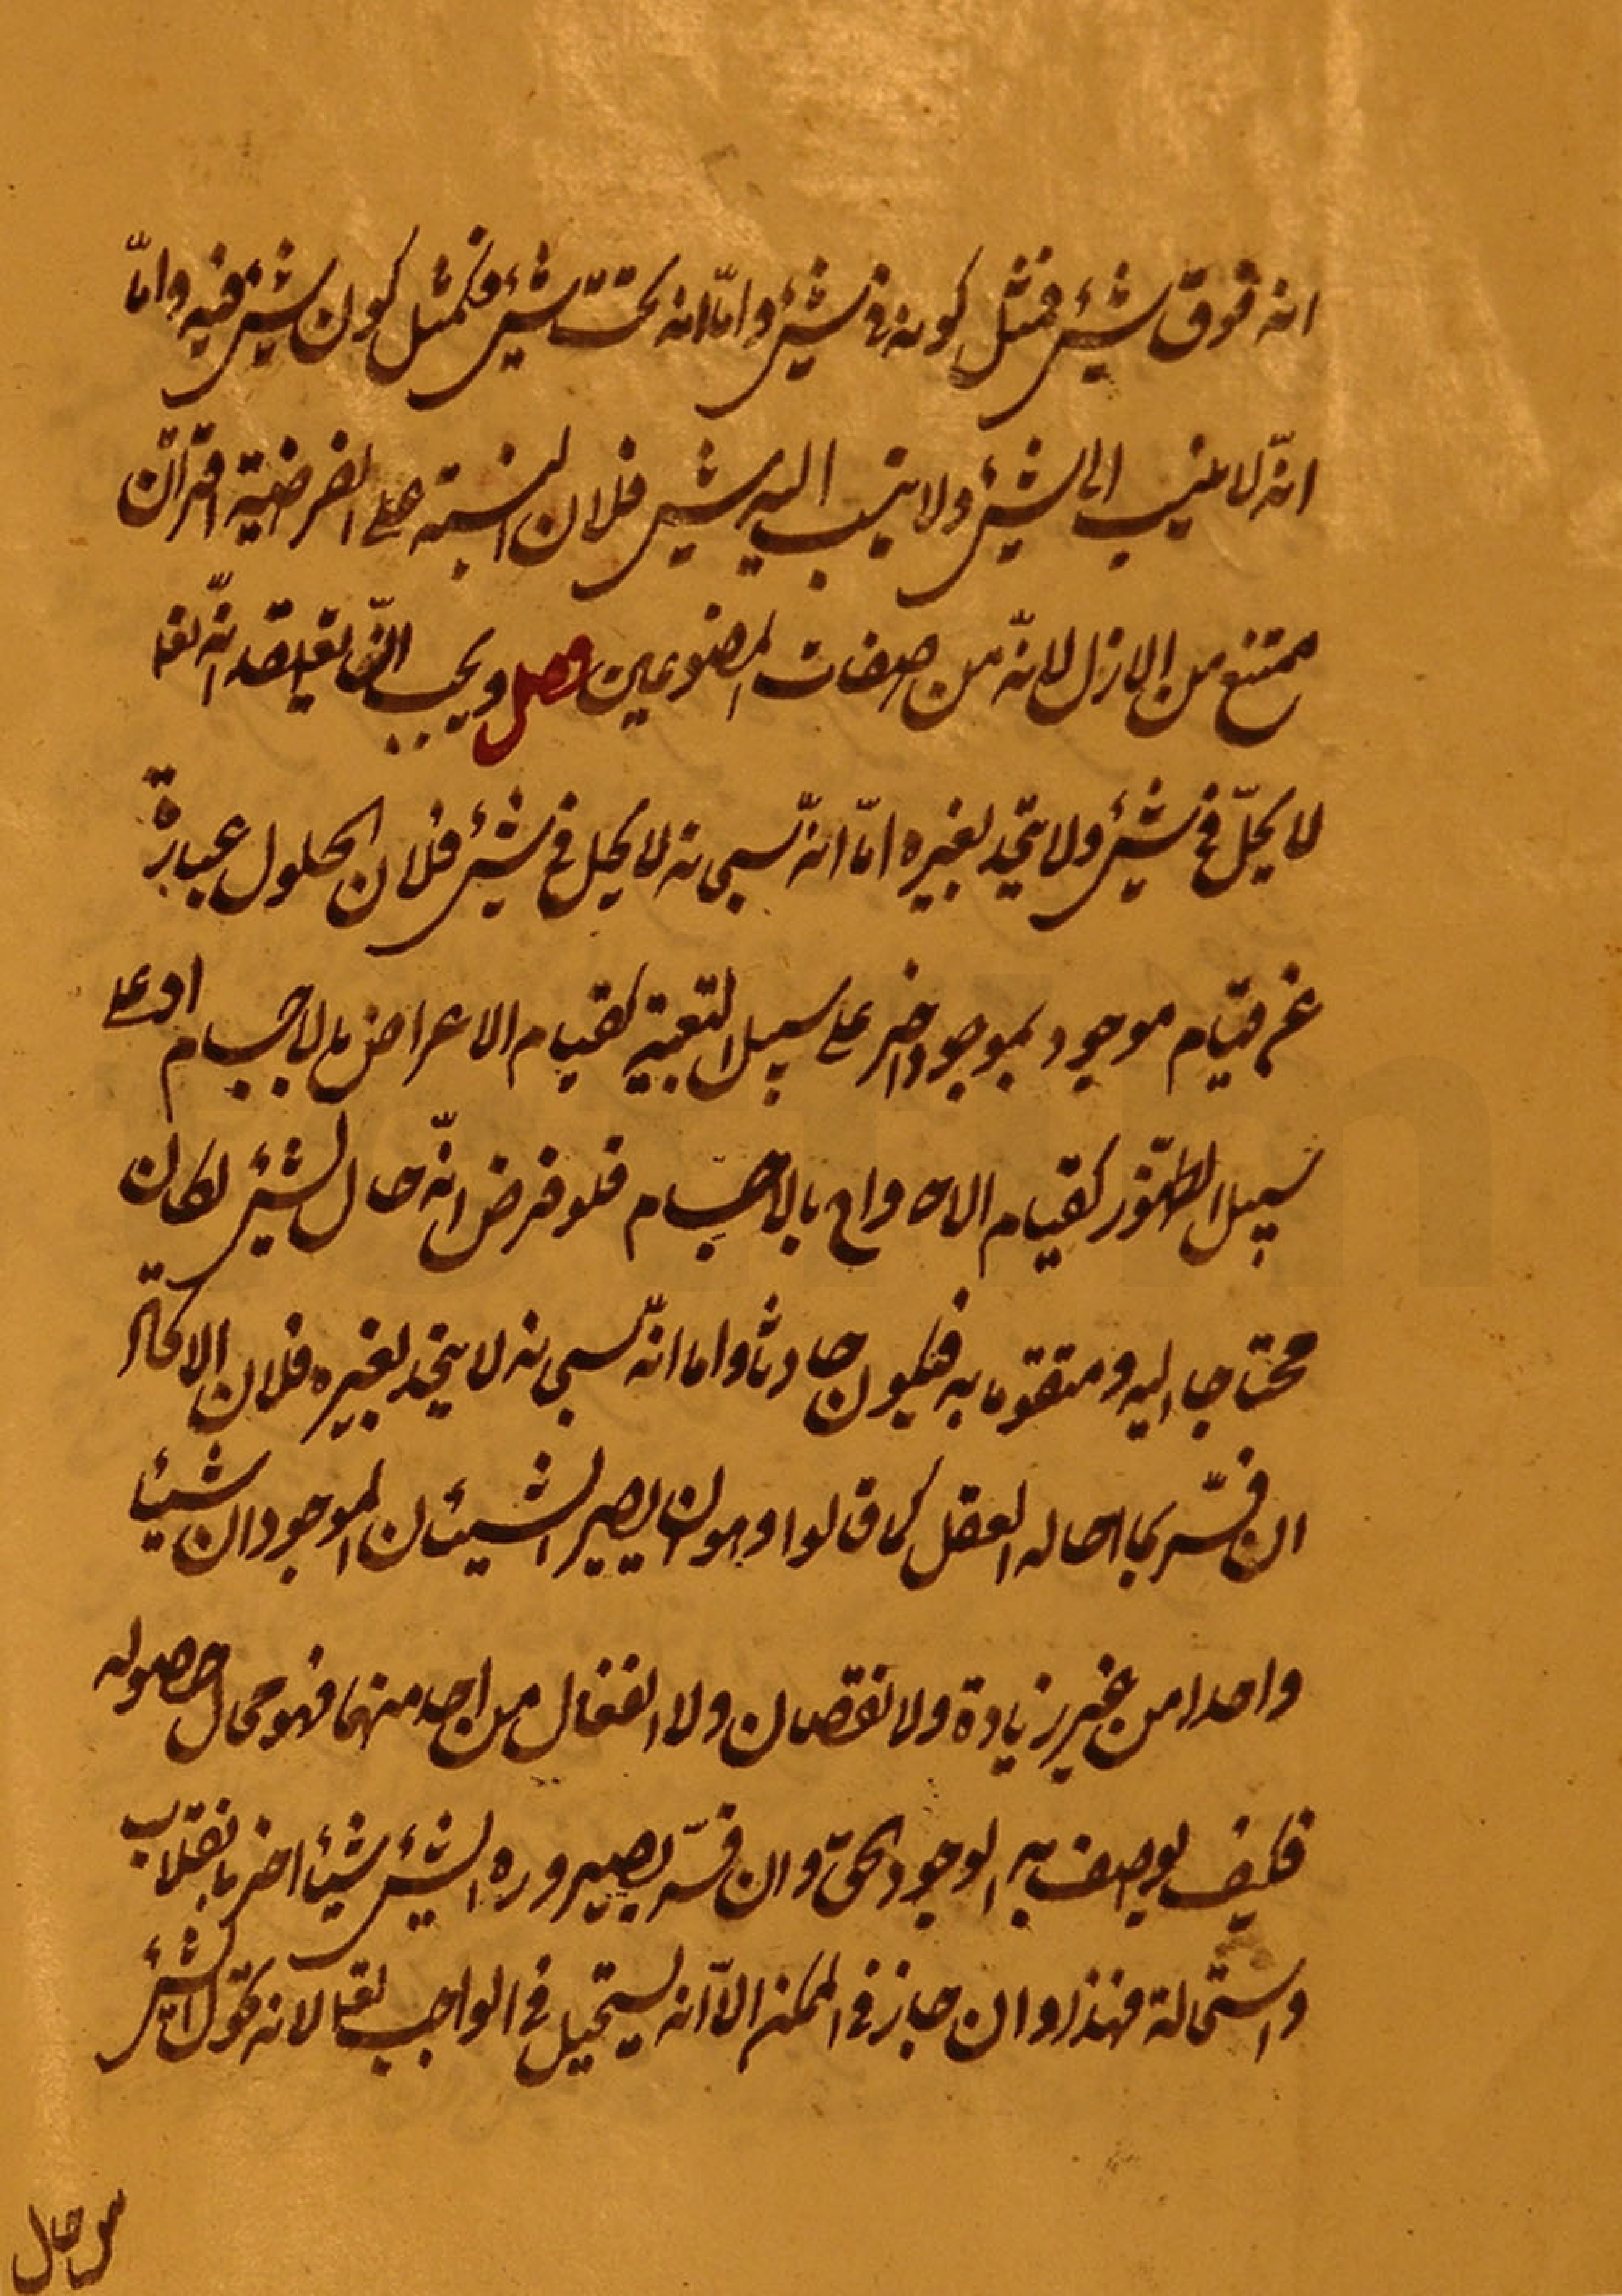 انه فوق شيئ فمثل كونه في شيئ و امّا انه تحت شيئ فكمثل كون شيئ فيه و امّا
انّه لا ينسب الى شيئ ولا ينسب اليه شيئ فلان النسبة على الفرضية اقتران
ممتنع من الازل لانّه من صفات المصنوعين فصل و يجب ان يعتقد انّه تعا
لا يحلّ في شيئ ولا يتحد بغيره امّا انّه سبحانه لا يحل في شيئ فلان الحلول عبارة
عن قيام موجود بموجود اخر على سبيل التبعية كقيام الاعراض بالاجسام او على
سبيل الظهور كقيام الارواح بالاجسام فلو فرض انّه حال لشيئ لكان
محتاجا اليه و متقوما به فيكون حادثا و اما انّه سبحانه لا يتحد بغيره فلان الاتحاد
ان فسّر بما احاله العقل كما قالوا و هو ان يصير الشيئان الموجودان شيئا
واحدا من غير زيادة ولا نقصان ولا انفعال من احد منهما فهو محال حصوله
فكيف يوصف به الوجود الحقّ و ان فسّر بصيروره الشيئ شيئا اخر بانقلاب
و استحالة فهذا و ان جاز في الممكن الّا انه يستحيل في الواجب تعا لانه تحوّل الشيئ
من حال